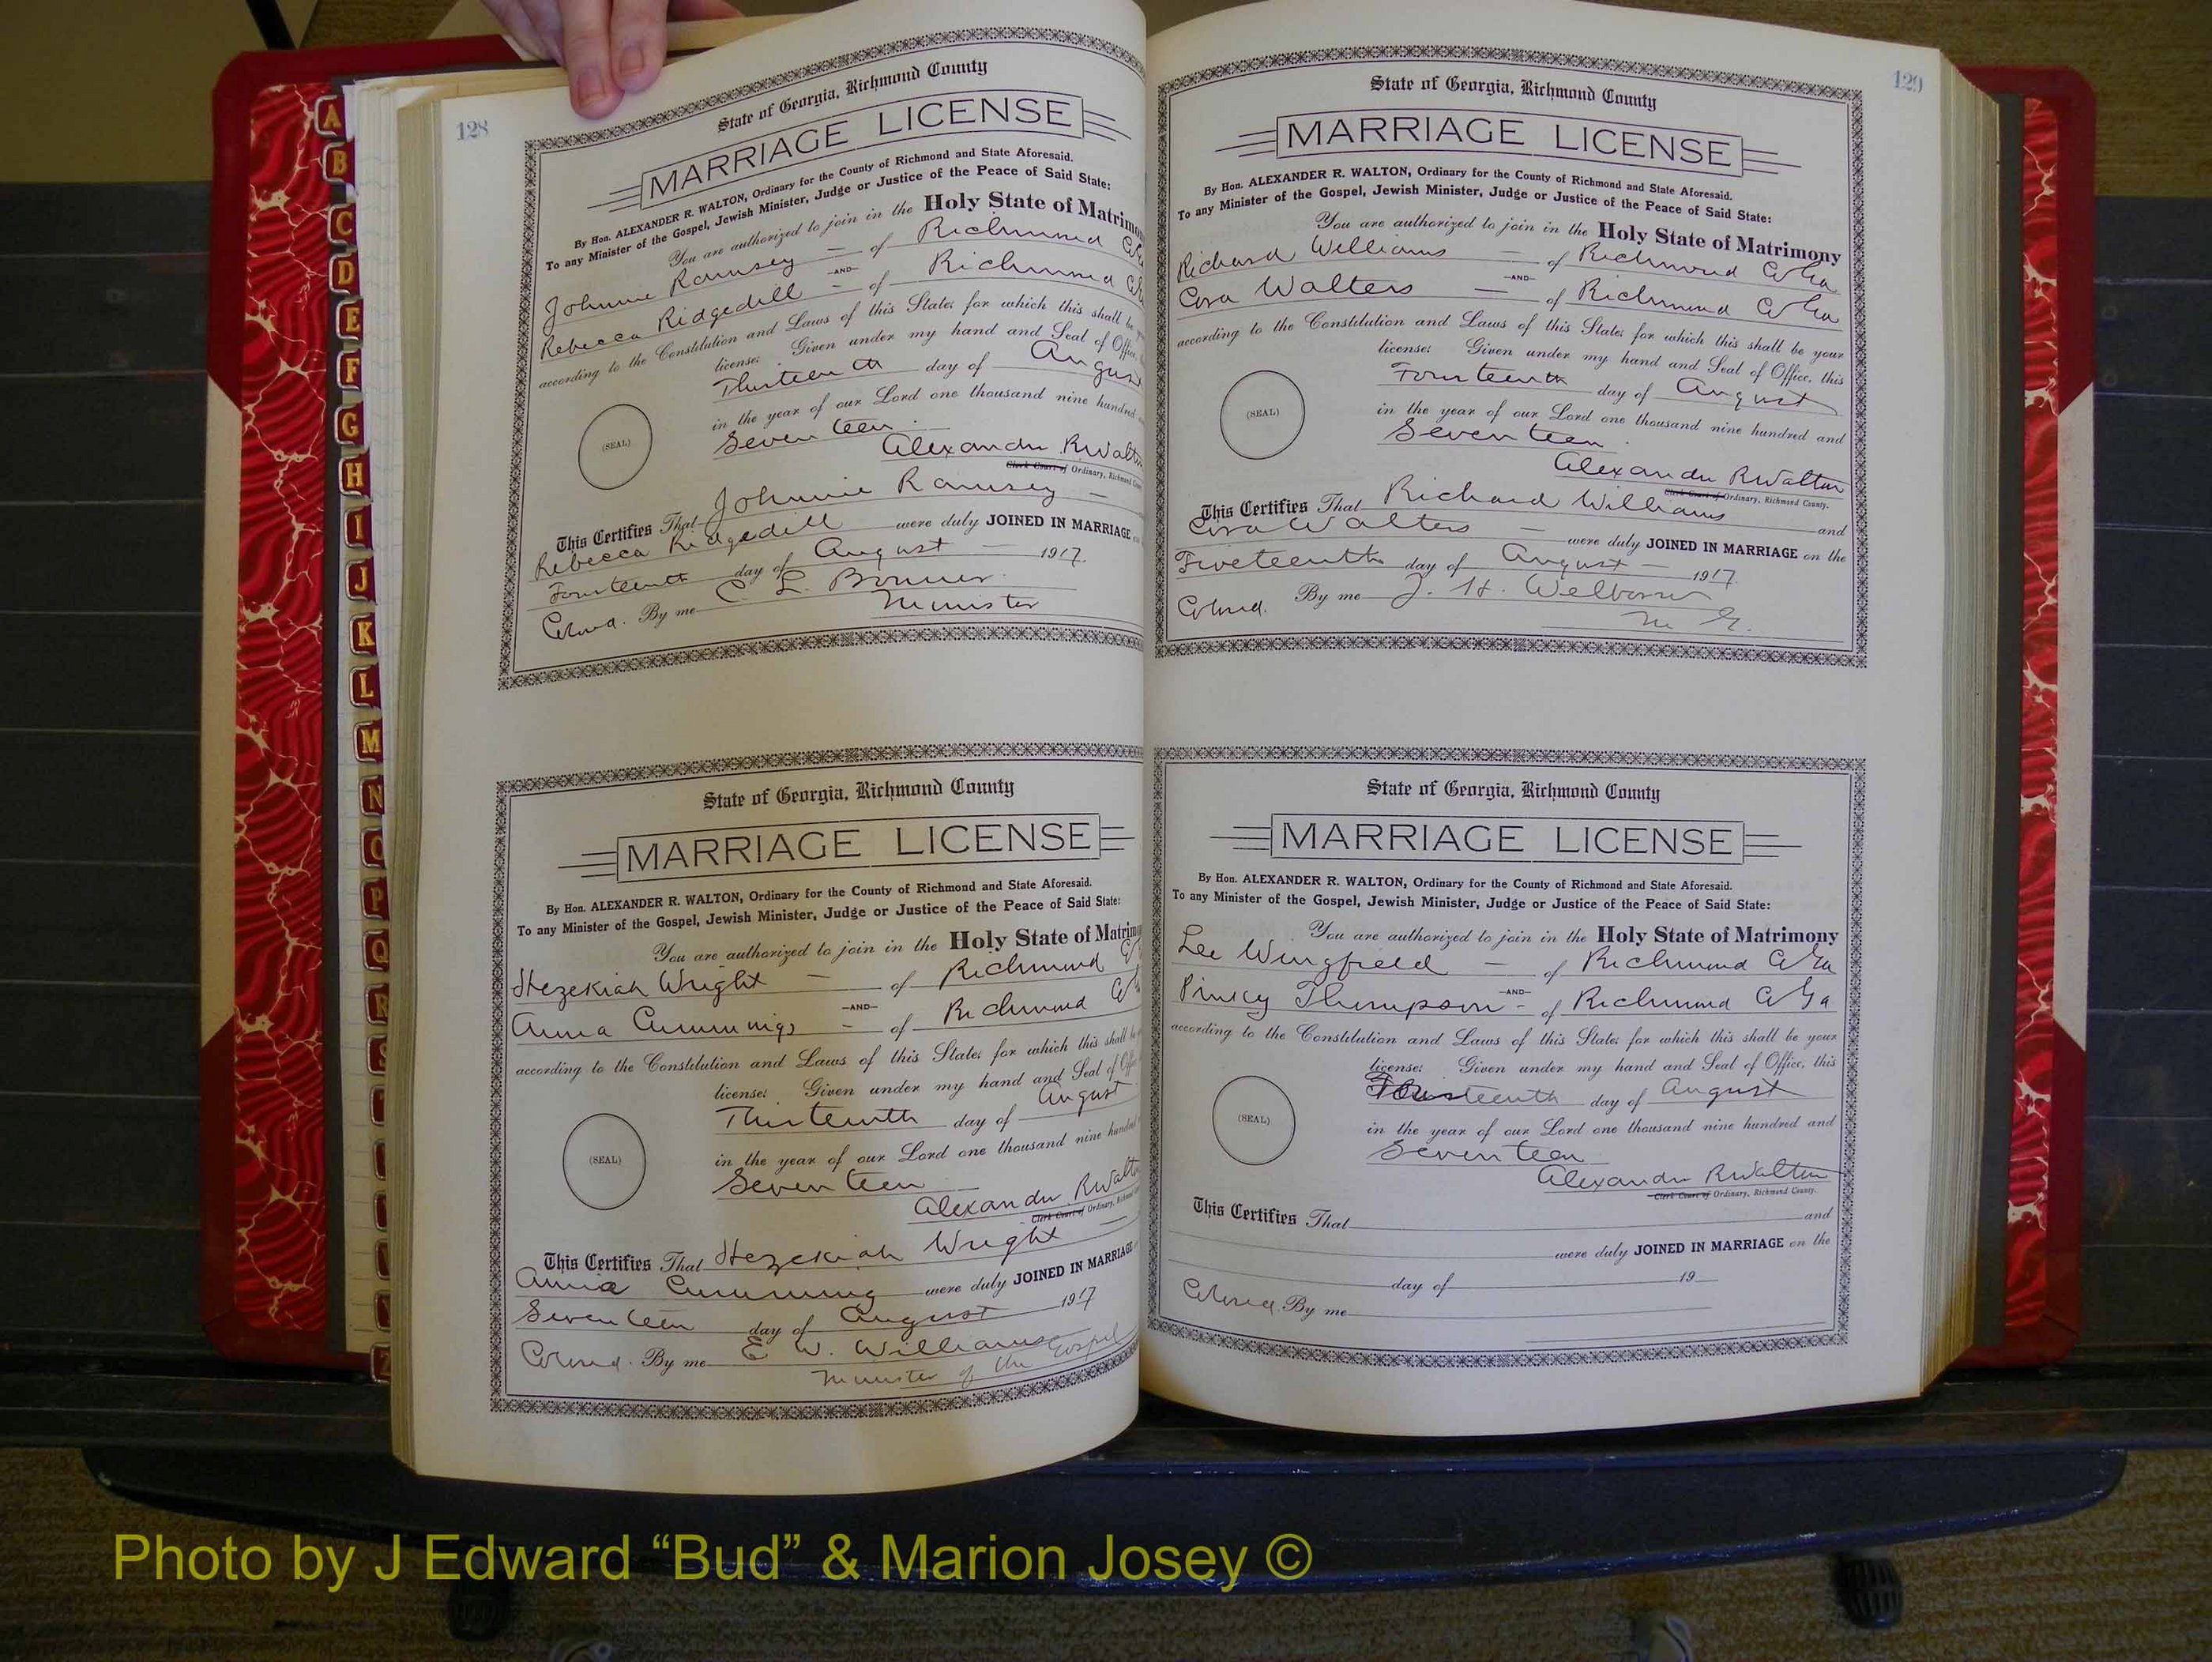 128
State of Georgia, Richmond County
MARRIAGE LICENSE
By Hon. ALEXANDER R. WALTON, Ordinary for the County of Richmond and State Aforesaid.
To any Minister of the Gospel, Jewish Minister, Judge or Justice of the Peace of Said State:
You are authorized to join in the Holy State of Matrimo
Johnnie Ramsey — of Richmond Co
—AND—
Rebecca Ridgedill - of Richmond Co
according to the Constitution and Laws of this State; for which this shall be
license: Given under my hand and Seal of Office,
Thirteenth day of August
in the year of our Lord one thousand nine hundred
Seventeen
(SEAL)
Alexander R Walto
Clerk Court of Ordinary, Richmond
This Certifies That Johnnie Ramsey —
Rebecca Ridgedill were duly JOINED IN MARRIAGE
Fourteenth day of August — 1917.
Colored. By me C. L. Bonner
Minister
State of Georgia, Richmond County
MARRIAGE LICENSE
By Hon. ALEXANDER R. WALTON, Ordinary for the County of Richmond and State Aforesaid.
To any Minister of the Gospel, Jewish Minister, Judge or Justice of the Peace of Said State:
You are authorized to join in the Holy State of Matrim
Hezekiah Wright — of Richmond Co
—AND—
Anna Cummings - of Richmond Co
according to the Constitution and Laws of this State; for which this shall be
license: Given under my hand and Seal of Offi
Thirteenth day of August
in the year of our Lord one thousand nine hundred
Seventeen
(SEAL)
Alexander R Walto
Clerk Court of Ordinary, Richmond
This Certifies That Hezekiah Wright —
Annie Cumming were duly JOINED IN MARRIAGE
Seventeen day of August 1917
Colored. By me E W. Williams
Minister of the Gospel
129
State of Georgia, Richmond County
MARRIAGE LICENSE
By Hon. ALEXANDER R. WALTON, Ordinary for the County of Richmond and State Aforesaid.
To any Minister of the Gospel, Jewish Minister, Judge or Justice of the Peace of Said State:
You are authorized to join in the Holy State of Matrimony
Richard Williams — of Richmond Co Ga
—AND—
Cora Walters — of Richmond Co Ga
according to the Constitution and Laws of this State; for which this shall be your
license: Given under my hand and Seal of Office, this
Fourteenth day of August
in the year of our Lord one thousand nine hundred and
Seventeen.
(SEAL)
Alexander R Walton
Clerk Court of Ordinary, Richmond County.
This Certifies That Richard Williams and
Cora Walters — were duly JOINED IN MARRIAGE on the
Fiveteenth day of August — 1917.
Colored. By me J. H. Welborn
M G.
State of Georgia, Richmond County
MARRIAGE LICENSE
By Hon. ALEXANDER R. WALTON, Ordinary for the County of Richmond and State Aforesaid.
To any Minister of the Gospel, Jewish Minister, Judge or Justice of the Peace of Said State:
You are authorized to join in the Holy State of Matrimony
Lee Wingfield — of Richmond Co Ga
—AND—
Pinky Thompson - of Richmond Co Ga
according to the Constitution and Laws of this State; for which this shall be your
license: Given under my hand and Seal of Office, this
Fourteenth day of August
in the year of our Lord one thousand nine hundred and
Seventeen
(SEAL)
Alexander R Walton
Clerk Court of Ordinary, Richmond County.
This Certifies That and
were duly JOINED IN MARRIAGE on the
day of 19
Colored. By me
A
B
C
D
E
F
G
H
I
J
K
L
M
N
O
P
Q
R
S
Z
Photo by J Edward “Bud” & Marion Josey ©